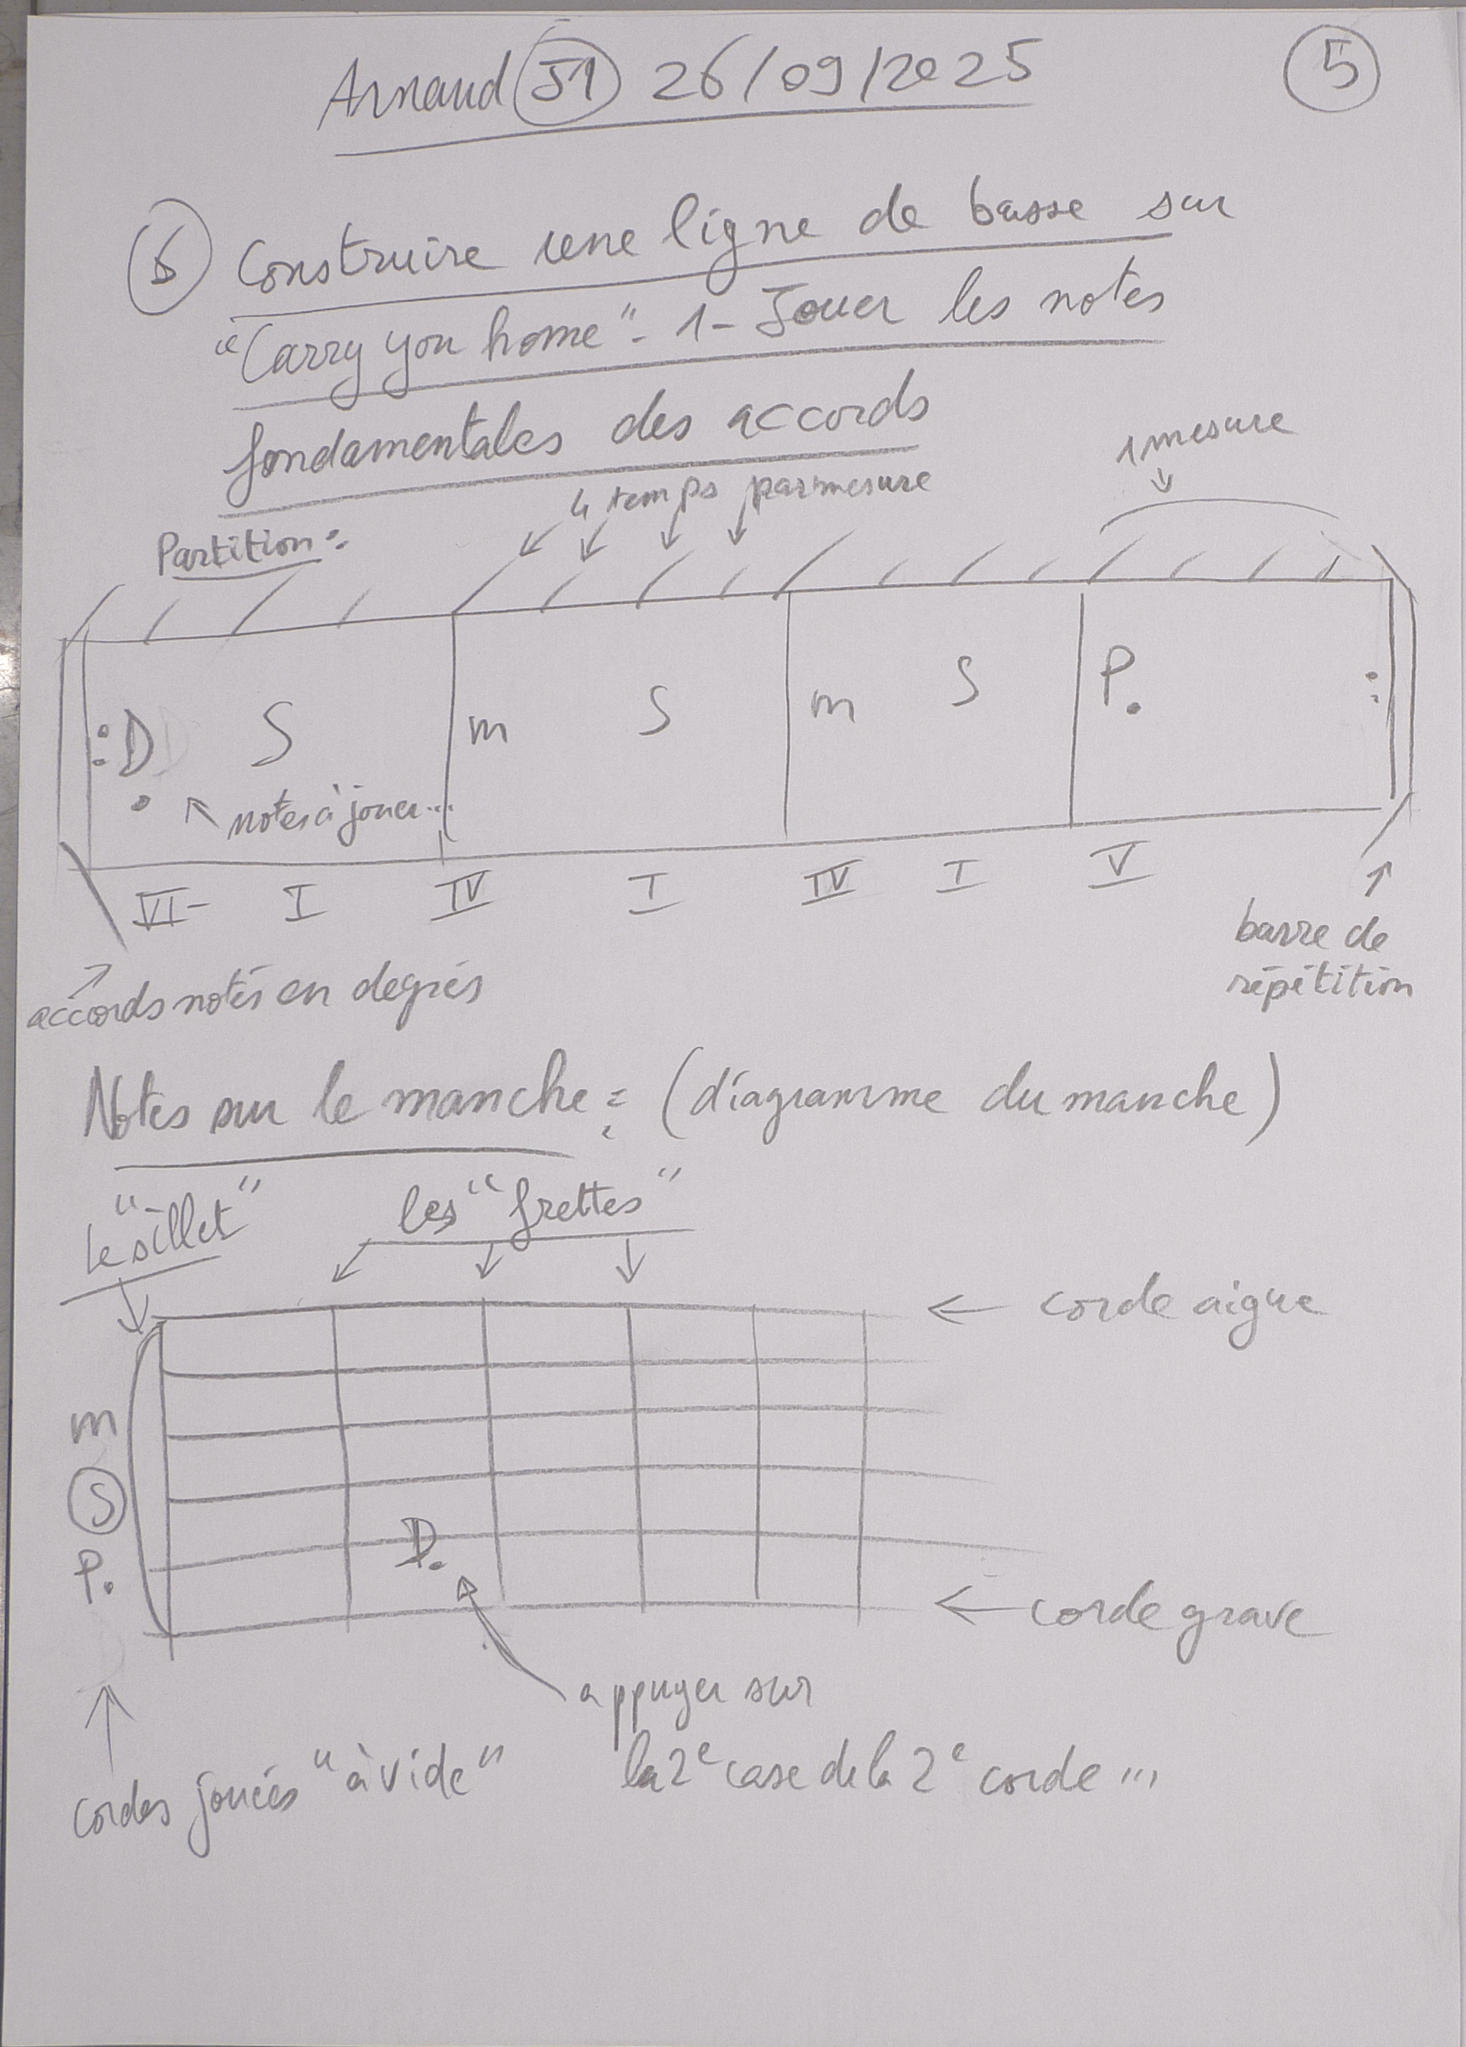 Arnaud 51 26/09/2025
5
6 Construire une ligne de basse sur
"Carry you home" - 1 - Jouer les notes
fondamentales des accords
1 mesure
4 temps par mesure
Partition :
: D S m S m S P. :
notes à jouer...
VI- I IV I IV I V
barre de
répétition
accords notés en degrés
Notes sur le manche : (diagramme du manche)
le "sillet"
les "frettes"
corde aigue
m
S
P.
D.
corde grave
appuyer sur
la 2e case de la 2e corde ...
cordes jouées "à vide"